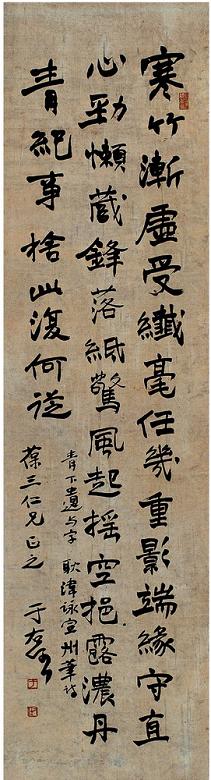 寒竹漸虛受纖毫任幾重影端緣守直
心勁懶藏鋒落紙驚風起搖空挹露濃丹
青紀事捨此復何從
青下遺与字 耿湋詠宣州筆詩
葆三仁兄正之 于右任